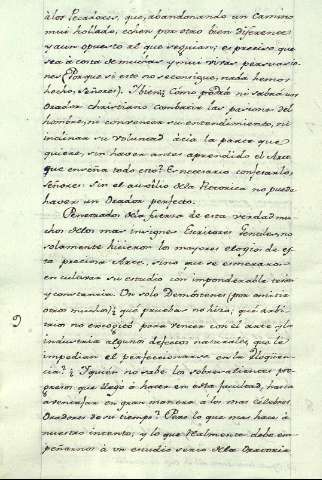 à los Pecadores, que, abandonando un camino
mui hollado, echen por otro bien diferente
y aun opuesto al que seguian; es preciso, que
sea à costa de muchas y mui vivas persuasio-
nes (Porque si esto no se consigue, nada hemos
hecho, Señores). I bien; Como podrà ni sabrà un
Orador christiano combatir las pasiones del
hombre, ni convencer su entendimiento, ni
inclinar su voluntad àcia la parte que
quiere, sin haver antes aprendido el Arte
que enseña todo esto? Es necesario confesarlo,
Señores: Sin el auxilio dela Retorica no puede
haver un Orador perfecto.
Penetrados dela fuerza de esta verdad mu-
chos delos mas insignes Escritores Gentiles, no
solamente hicieron los mayores elogios de es-
ta preciosa Arte, sino que se esmeraron
en cultivar su estudio con imponderable teson
y constancia. Un solo Demóstenes (por omitir
otros muchos) ¿què pruebas no hizo; què arbi-
trios no escogiò para vencer con el arte y la
industria algunos defectos naturales, que le
impedian el perfeccionarse en la Eloquen-
cia? ¿I quién no sabe los sobresalientes pro-
gresos que llegò à hacer en esta facultad, hasta
aventajar en gran manera à los mas célebres
Oradores de su tiempo? Pero lo que mas hace à
nuestro intento, y lo que realmente debe em-
peñarnos à un estudio serio dela Oratoria